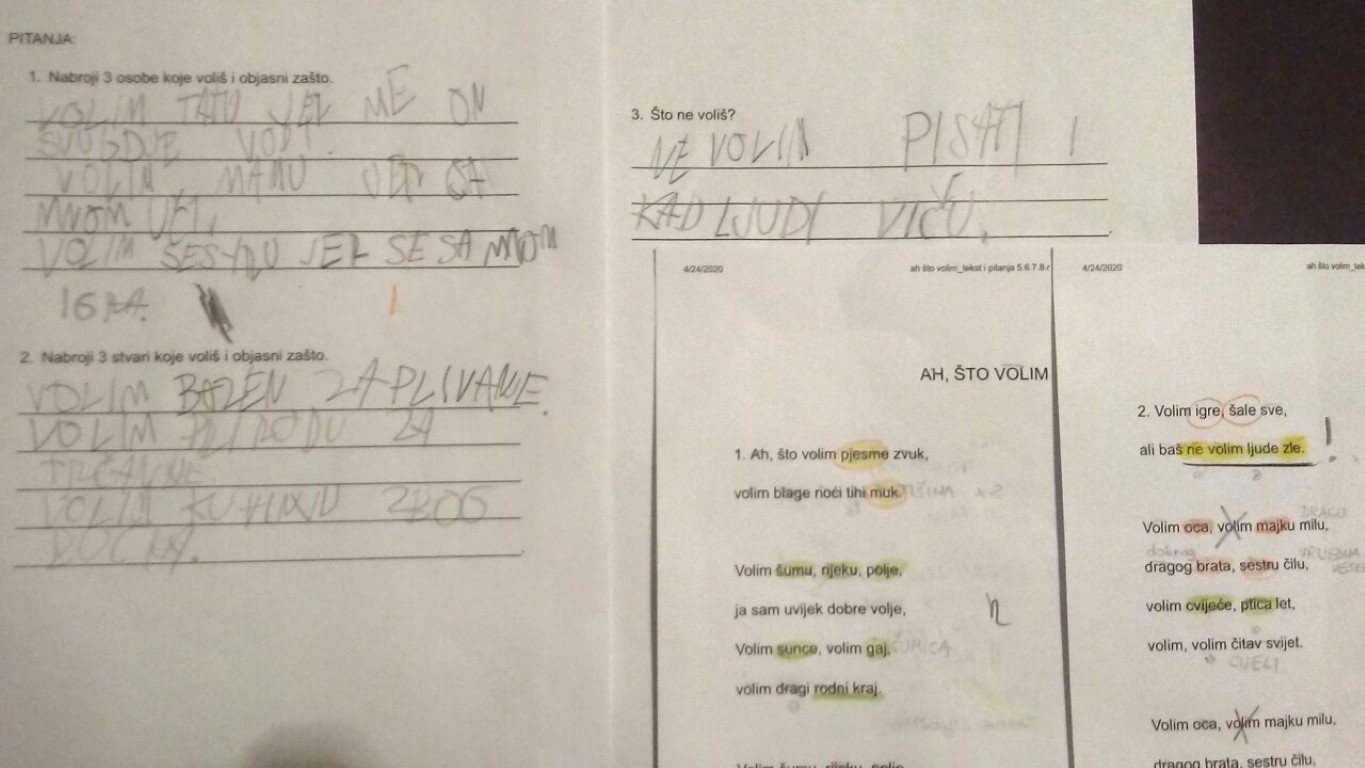 PITANJA:
1. Nabroji 3 osobe koje voliš i objasni zašto.
VOLIM TATU JER ME ON
SVUGDJE VODI.
VOLIM MAMU JER SA
MNOM UČI.
VOLIM SESTRU JER SE SA MNOM
IGRA.
2. Nabroji 3 stvari koje voliš i objasni zašto.
VOLIM BAZEN ZA PLIVANJE.
VOLIM PRIRODU ZA
TRČANJE.
VOLIM KUHINJU ZBOG
3. Što ne voliš?
NE VOLIM PISATI I
KAD LJUDI VIČU.
4/24/2020 ah što volim_tekst i pitanja 5.6.7.8.r
AH, ŠTO VOLIM
1. Ah, što volim pjesme zvuk,
volim blage noći tihi muk. TIŠINA
Volim šumu, rijeku, polje,
ja sam uvijek dobre volje,
Volim sunce, volim gaj, ŠUMICA
volim dragi rodni kraj.
Volim šumu, rijeku, polje,
4/24/2020 ah što volim_tek
2. Volim igre, šale sve,
ali baš ne volim ljude zle. !
DRAGU
Volim oca, volim majku milu,
dobrog VRIJEDNA
dragog brata, sestru čilu,
volim cvijeće, ptica let,
volim, volim čitav svijet.
CIJELI
Volim oca, volim majku milu,
dragog brata, sestru čilu,